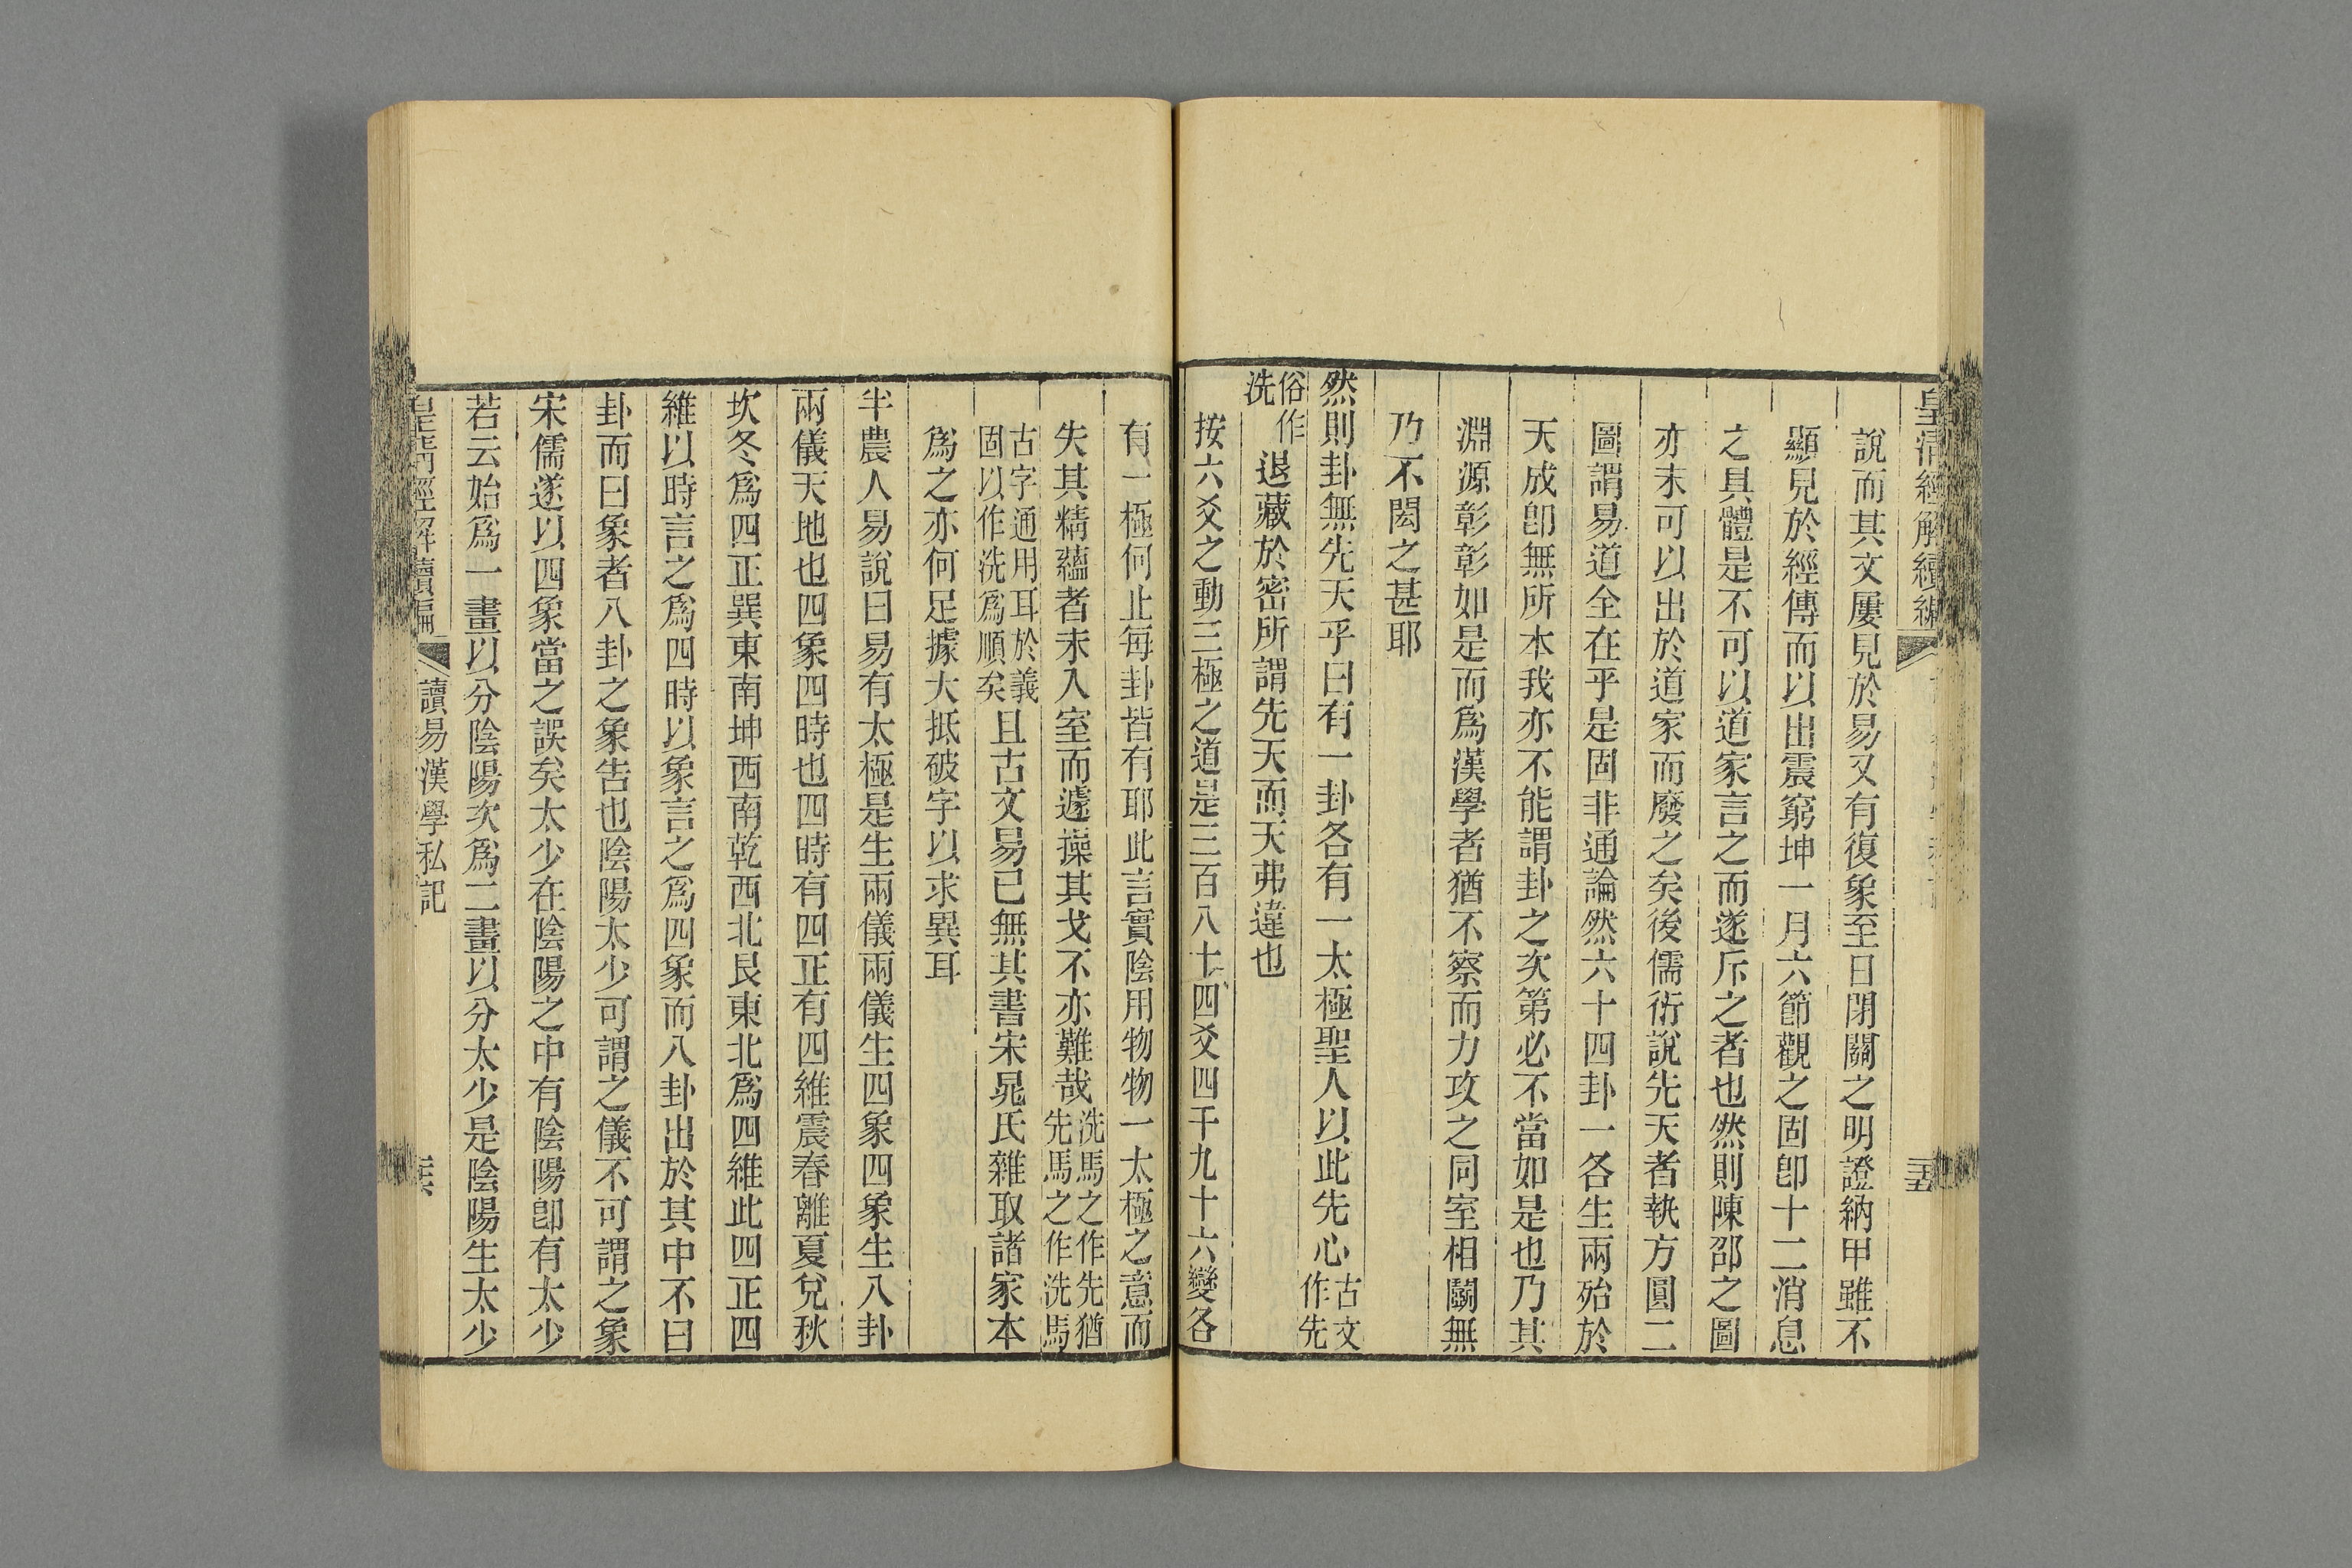 皇清經解續編
說而其文屢見於易又有復象至日閉關之明證納甲雖不
顯見於經傳而以出震窮坤一月六節觀之固卽十二消息
之具體是不可以道家言之而遂斥之者也然則陳邵之圖
亦未可以出於道家而廢之矣後儒衍說先天者執方圓二
圖謂易道全在乎是固非通論然六十四卦一各生兩殆於
天成卽無所本我亦不能謂卦之次第必不當如是也乃其
淵源彰彰如是而爲漢學者猶不察而力攻之同室相鬭無
乃不閎之甚耶
然則卦無先天乎曰有一卦各有一太極聖人以此先心古文作先
俗作洗退藏於密所謂先天而天弗違也
按六爻之動三極之道是三百八十四爻四千九十六變各
有一極何止每卦皆有耶此言實陰用物物一太極之意而
失其精蘊者未入室而遽操其戈不亦難哉洗馬之作先猶先馬之作洗馬
古字通用耳於義固以作洗爲順矣且古文易已無其書宋晁氏雜取諸家本
爲之亦何足據大抵破字以求異耳
半農人易說曰易有太極是生兩儀兩儀生四象四象生八卦
兩儀天地也四象四時也四時有四正有四維震春離夏兌秋
坎冬爲四正巽東南坤西南乾西北艮東北爲四維此四正四
維以時言之爲四時以象言之爲四象而八卦出於其中不曰
卦而曰象者八卦之象告也陰陽太少可謂之儀不可謂之象
宋儒遂以四象當之誤矣太少在陰陽之中有陰陽卽有太少
若云始爲一畫以分陰陽次爲二畫以分太少是陰陽生太少
皇清經解續編 讀易漢學私記